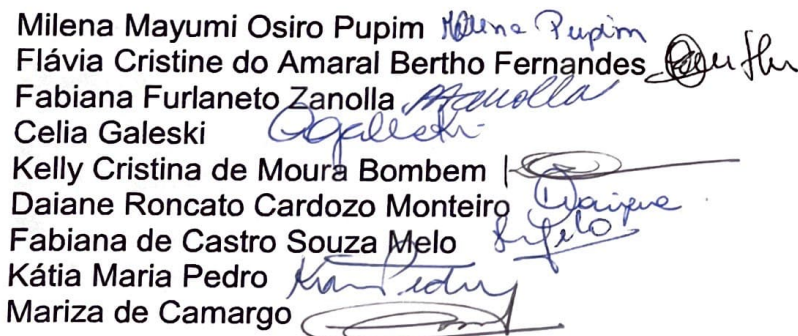 Milena Mayumi Osiro Pupim Milena Pupim
Flávia Cristine do Amaral Bertho Fernandes
Fabiana Furlaneto Zanolla FZanolla
Celia Galeski CGaleski
Kelly Cristina de Moura Bombem
Daiane Roncato Cardozo Monteiro Daiane
Fabiana de Castro Souza Melo
Kátia Maria Pedro
Mariza de Camargo